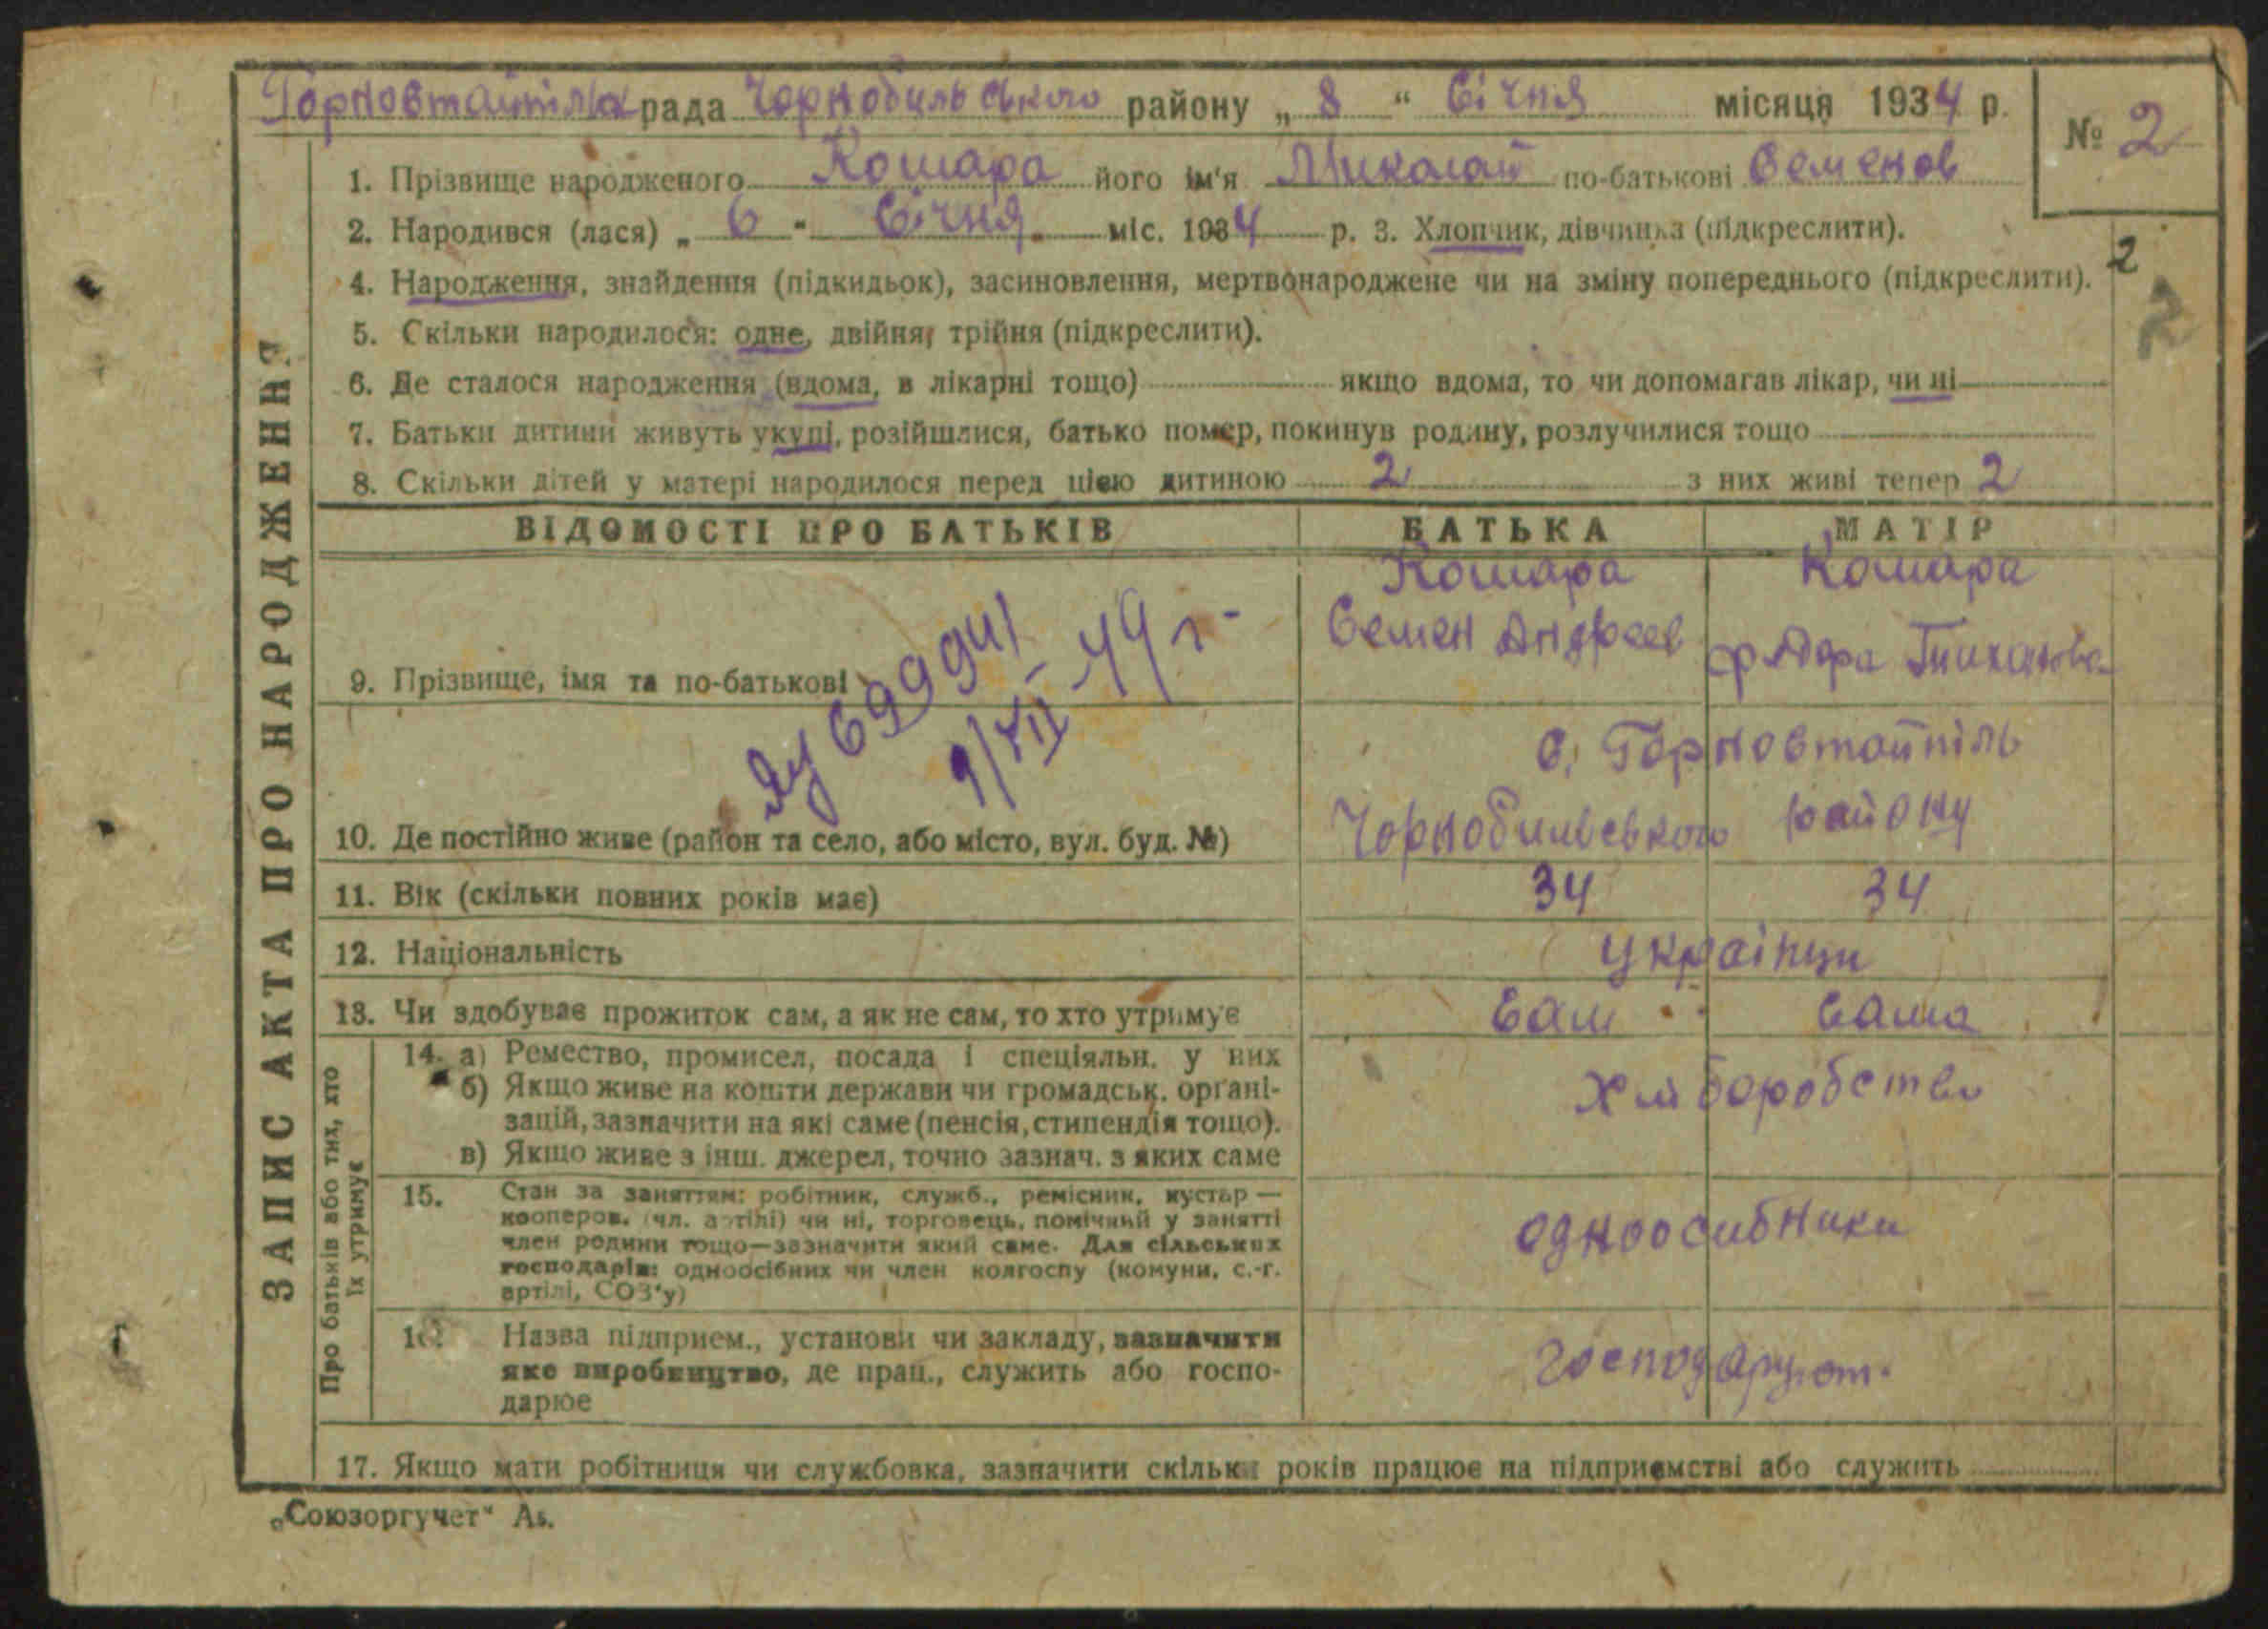 Горновтайпільа рада Чорнобильського району „ 8 “ Січня місяця 1934 р.
№ 2
1. Прізвище народженого Кошара його ім'я Миколай по-батькові Семенов
2. Народився (лася) „ 6 - Січня. міс. 1934 р. 3. Хлопчик, дівчинка (підкреслити).
2
4. Народження, знайдення (підкидьок), засиновлення, мертвонароджене чи на зміну попереднього (підкреслити).
2
5. Скільки народилося: одне, двійня, трійня (підкреслити).
6. Де сталося народження (вдома, в лікарні тощо) якщо вдома, то чи допомагав лікар, чи ні
7. Батьки дитини живуть укупі, розійшлися, батько помер, покинув родину, розлучилися тощо
8. Скільки дітей у матері народилося перед цією дитиною 2 з них живі тепер 2
ЗАПИС АКТА ПРО НАРОДЖЕННЯ
ВІДОМОСТІ ПРО БАТЬКІВ БАТЬКА МАТІР
Кошара Кошара
Семен Андреев Тихонова
9. Прізвище, імя та по-батькові
699941
9/VII-49 г-
с. Горновтайпіль
Чорнобильського району
10. Де постійно живе (район та село, або місто, вул. буд. №)
11. Вік (скільки повних років має) 34 34
12. Національність Українци
13. Чи здобуває прожиток сам, а як не сам, то хто утримує Сам Сама
Про батьків або тих, хто
їх утримує
14. а) Ремество, промисел, посада і спеціяльн. у них
б) Якщо живе на кошти держави чи громадськ. органі-
зацій, зазначити на які саме (пенсія, стипендія тощо).
в) Якщо живе з інш. джерел, точно зазнач. з яких саме
Хліборобство
15. Стан за заняттям: робітник, служб., ремісник, кустар —
кооперов. (чл. артілі) чи ні, торговець, помічний у занятті
член родини тощо—зазначити який саме. Для сільських
господарів: одноосібних чи член колгоспу (комуни, с.-г.
артілі, СОЗ'у)
одноосибники
16. Назва підприєм., установи чи закладу, зазначити
яке виробництво, де прац., служить або госпо-
дарює
господарюют.
17. Якщо мати робітниця чи службовка, зазначити скільки років працює на підприємстві або служить
„Союзоргучет“ Аз.